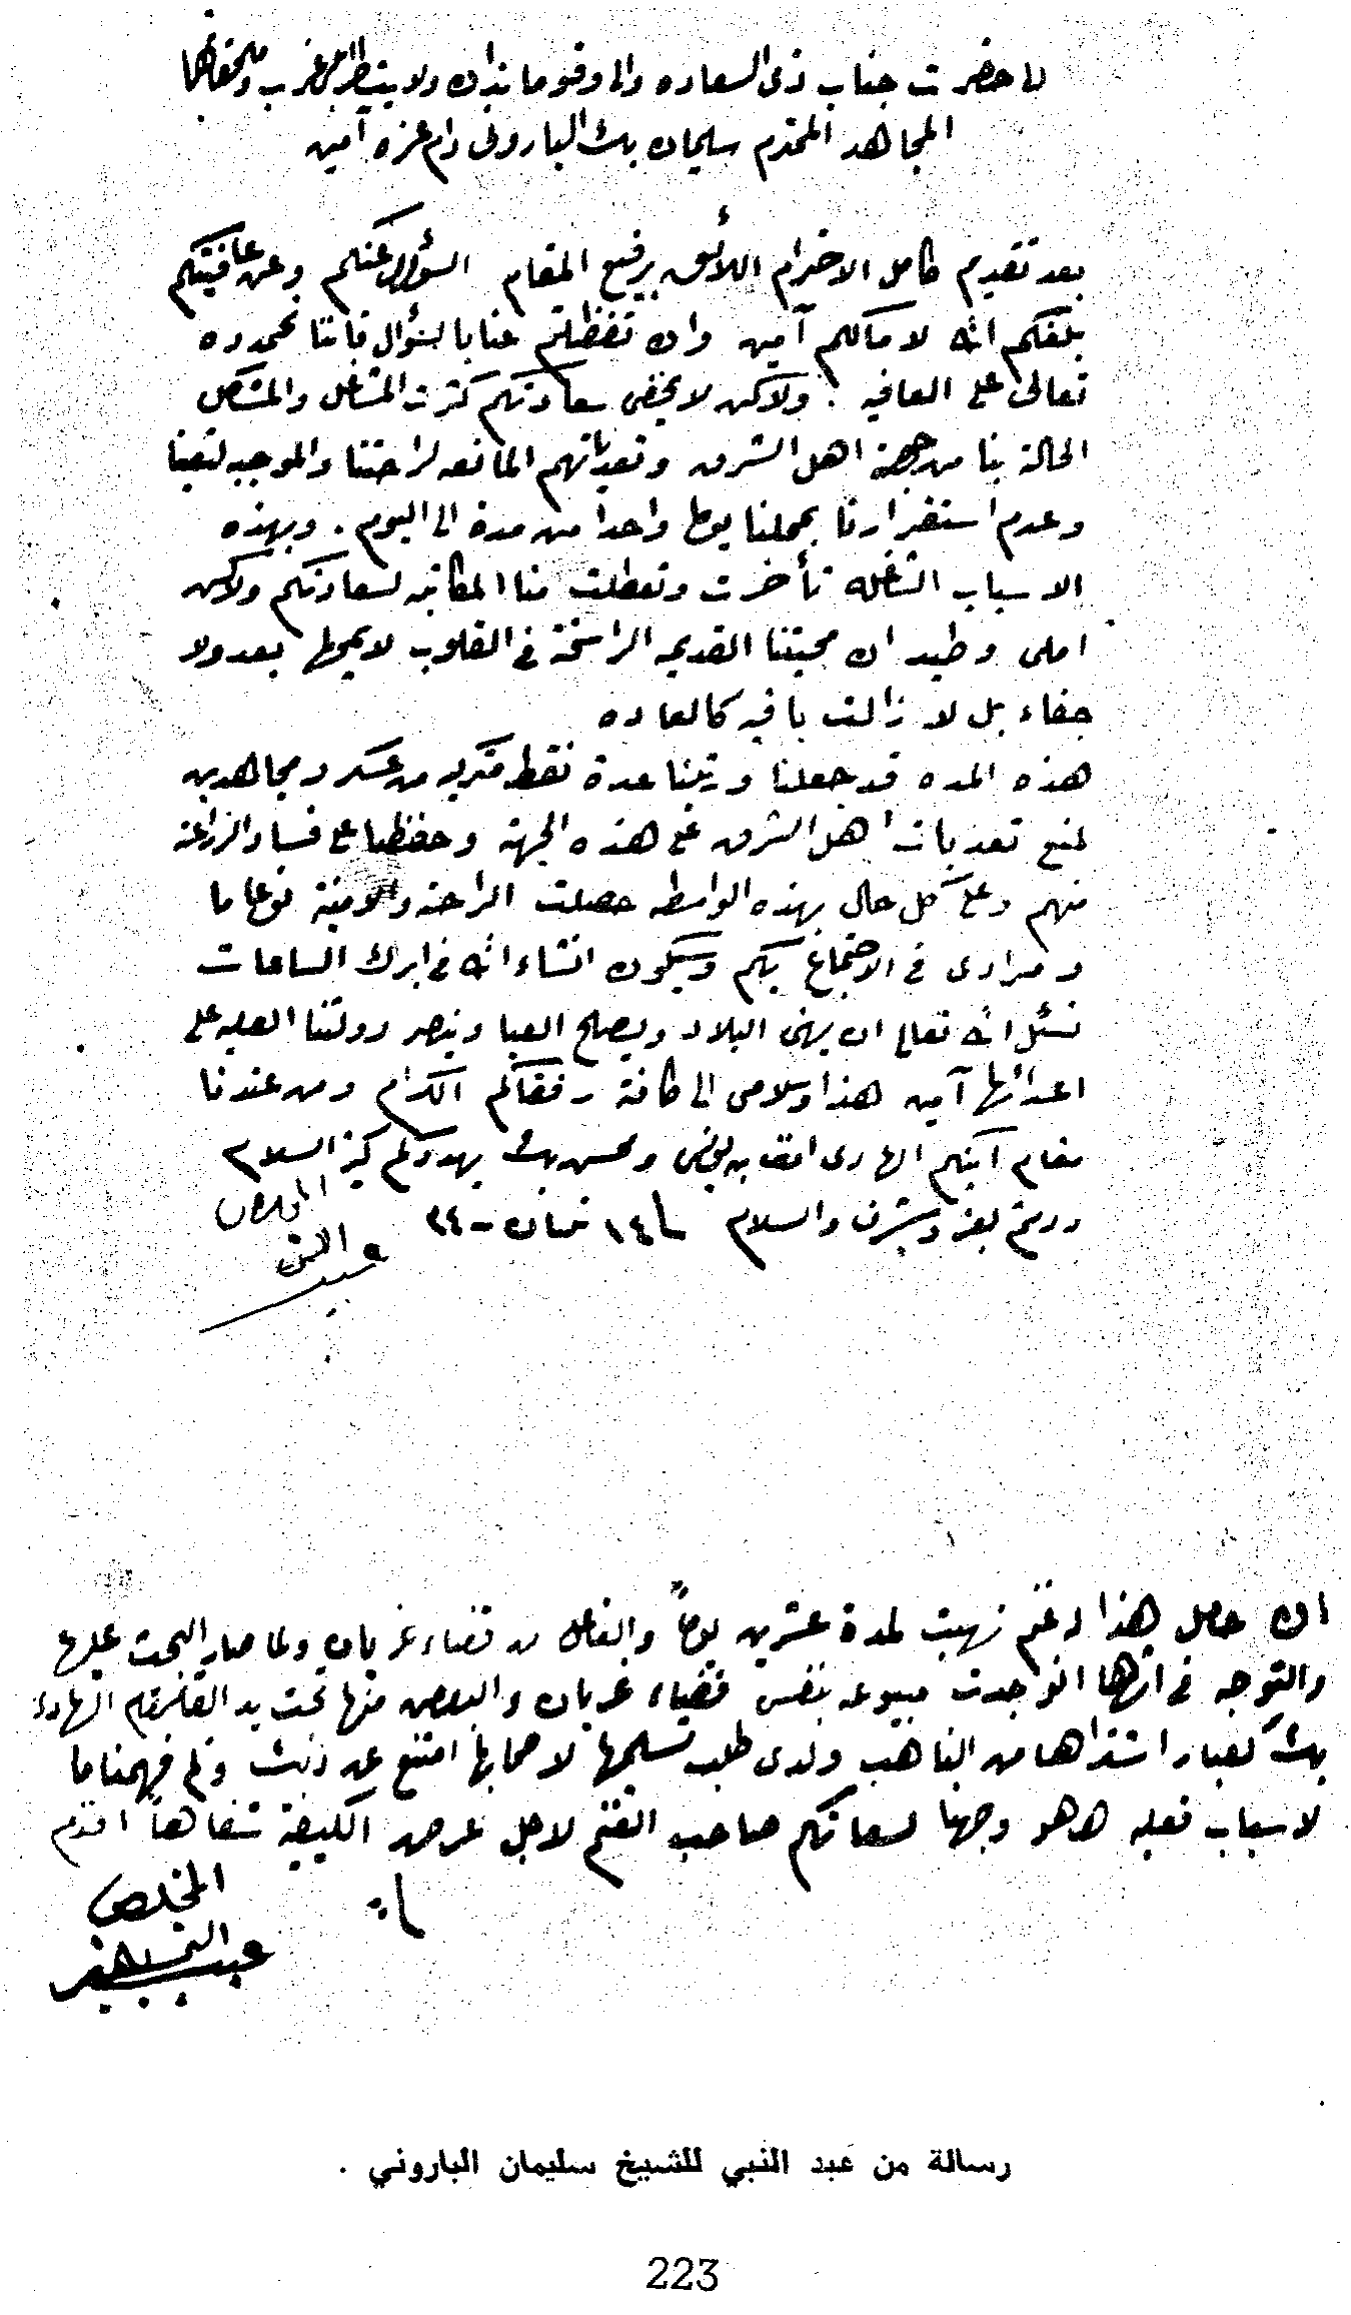 حضرت جناب ذى السعاده والى وقوماندان ولاية طرابلس غرب وملحقاتها
المجاهد المحترم سليمان بك البارونى دام عزه آمين
بعد تقديم كامل الاحترام اللائق برفيع المقام السؤال عنكم وعن عافيتكم
بلغكم الله لامالكم آمين وان تفظلتم عنا بالسؤال فاننا بحمده
تعالى على العافيه . ولاكن لا يخفى سعادتكم كثرت المشاغل والمشاكل
الحالة بنا من جهة اهل الشرق وتعدياتهم المانعه لراحتنا والموجبه لتعبنا
وعدم استقرارنا بمحلنا يوما واحدا من مدة الى اليوم . وبهذه
الاسباب الشاغله تأخرت وتعطلت منا المكاتبه لسعادتكم ولاكن
املى وطيد ان محبتنا القديمه الراسخة فى القلوب لا يمحها بعد ولا
جفاء بل لا زالت باقيه كالعاده
هذه المده قد جعلنا ورتبنا عدة نقط من عسكر ومجاهدين
لمنع تعديات اهل الشرق على هذه الجهة وحفظها على فساد الزراعة
منهم وعلى كل حال بهذه الواسطه حصلت الراحة والامنية نوعا ما
ومرادى فى الاجتماع بكم وسيكون انشاء الله فى ابرك الساعات
نسئل الله تعالى ان يهنى البلاد ويصلح العبا وينصر دولتنا العليه على
اعدائها آمين هذا وسلامى الى كافة رفقاكم الكرام ومن عندنا
مقام ابنكم الهادى ومحسن بك يهدوكم كثير السلام
ودمتم بعز وشرف والسلام ١٤
المخلص
ان حصل هذا لغنم نهبت لمدة عشرين يوماً والفاعل من قضاء غريان ولما صار البحث عليها
والتوجه فى اثرها انوجدت مبيوعه بنفس قضاء غريان والبعض منها تحت يد الهادى
بك كعبار اشتراها من الناهب ولدى طلب تسليمها لاصحابها امتنع عن ذلك ولم فهمنا ما
لاسباب فعله وجهنا لسعاتكم صاحب الغنم لاجل عرض الكيفية شفاهاً افندم
المخلص
عبد النبى
رسالة من عبد النبي للشيخ سليمان الباروني .
223